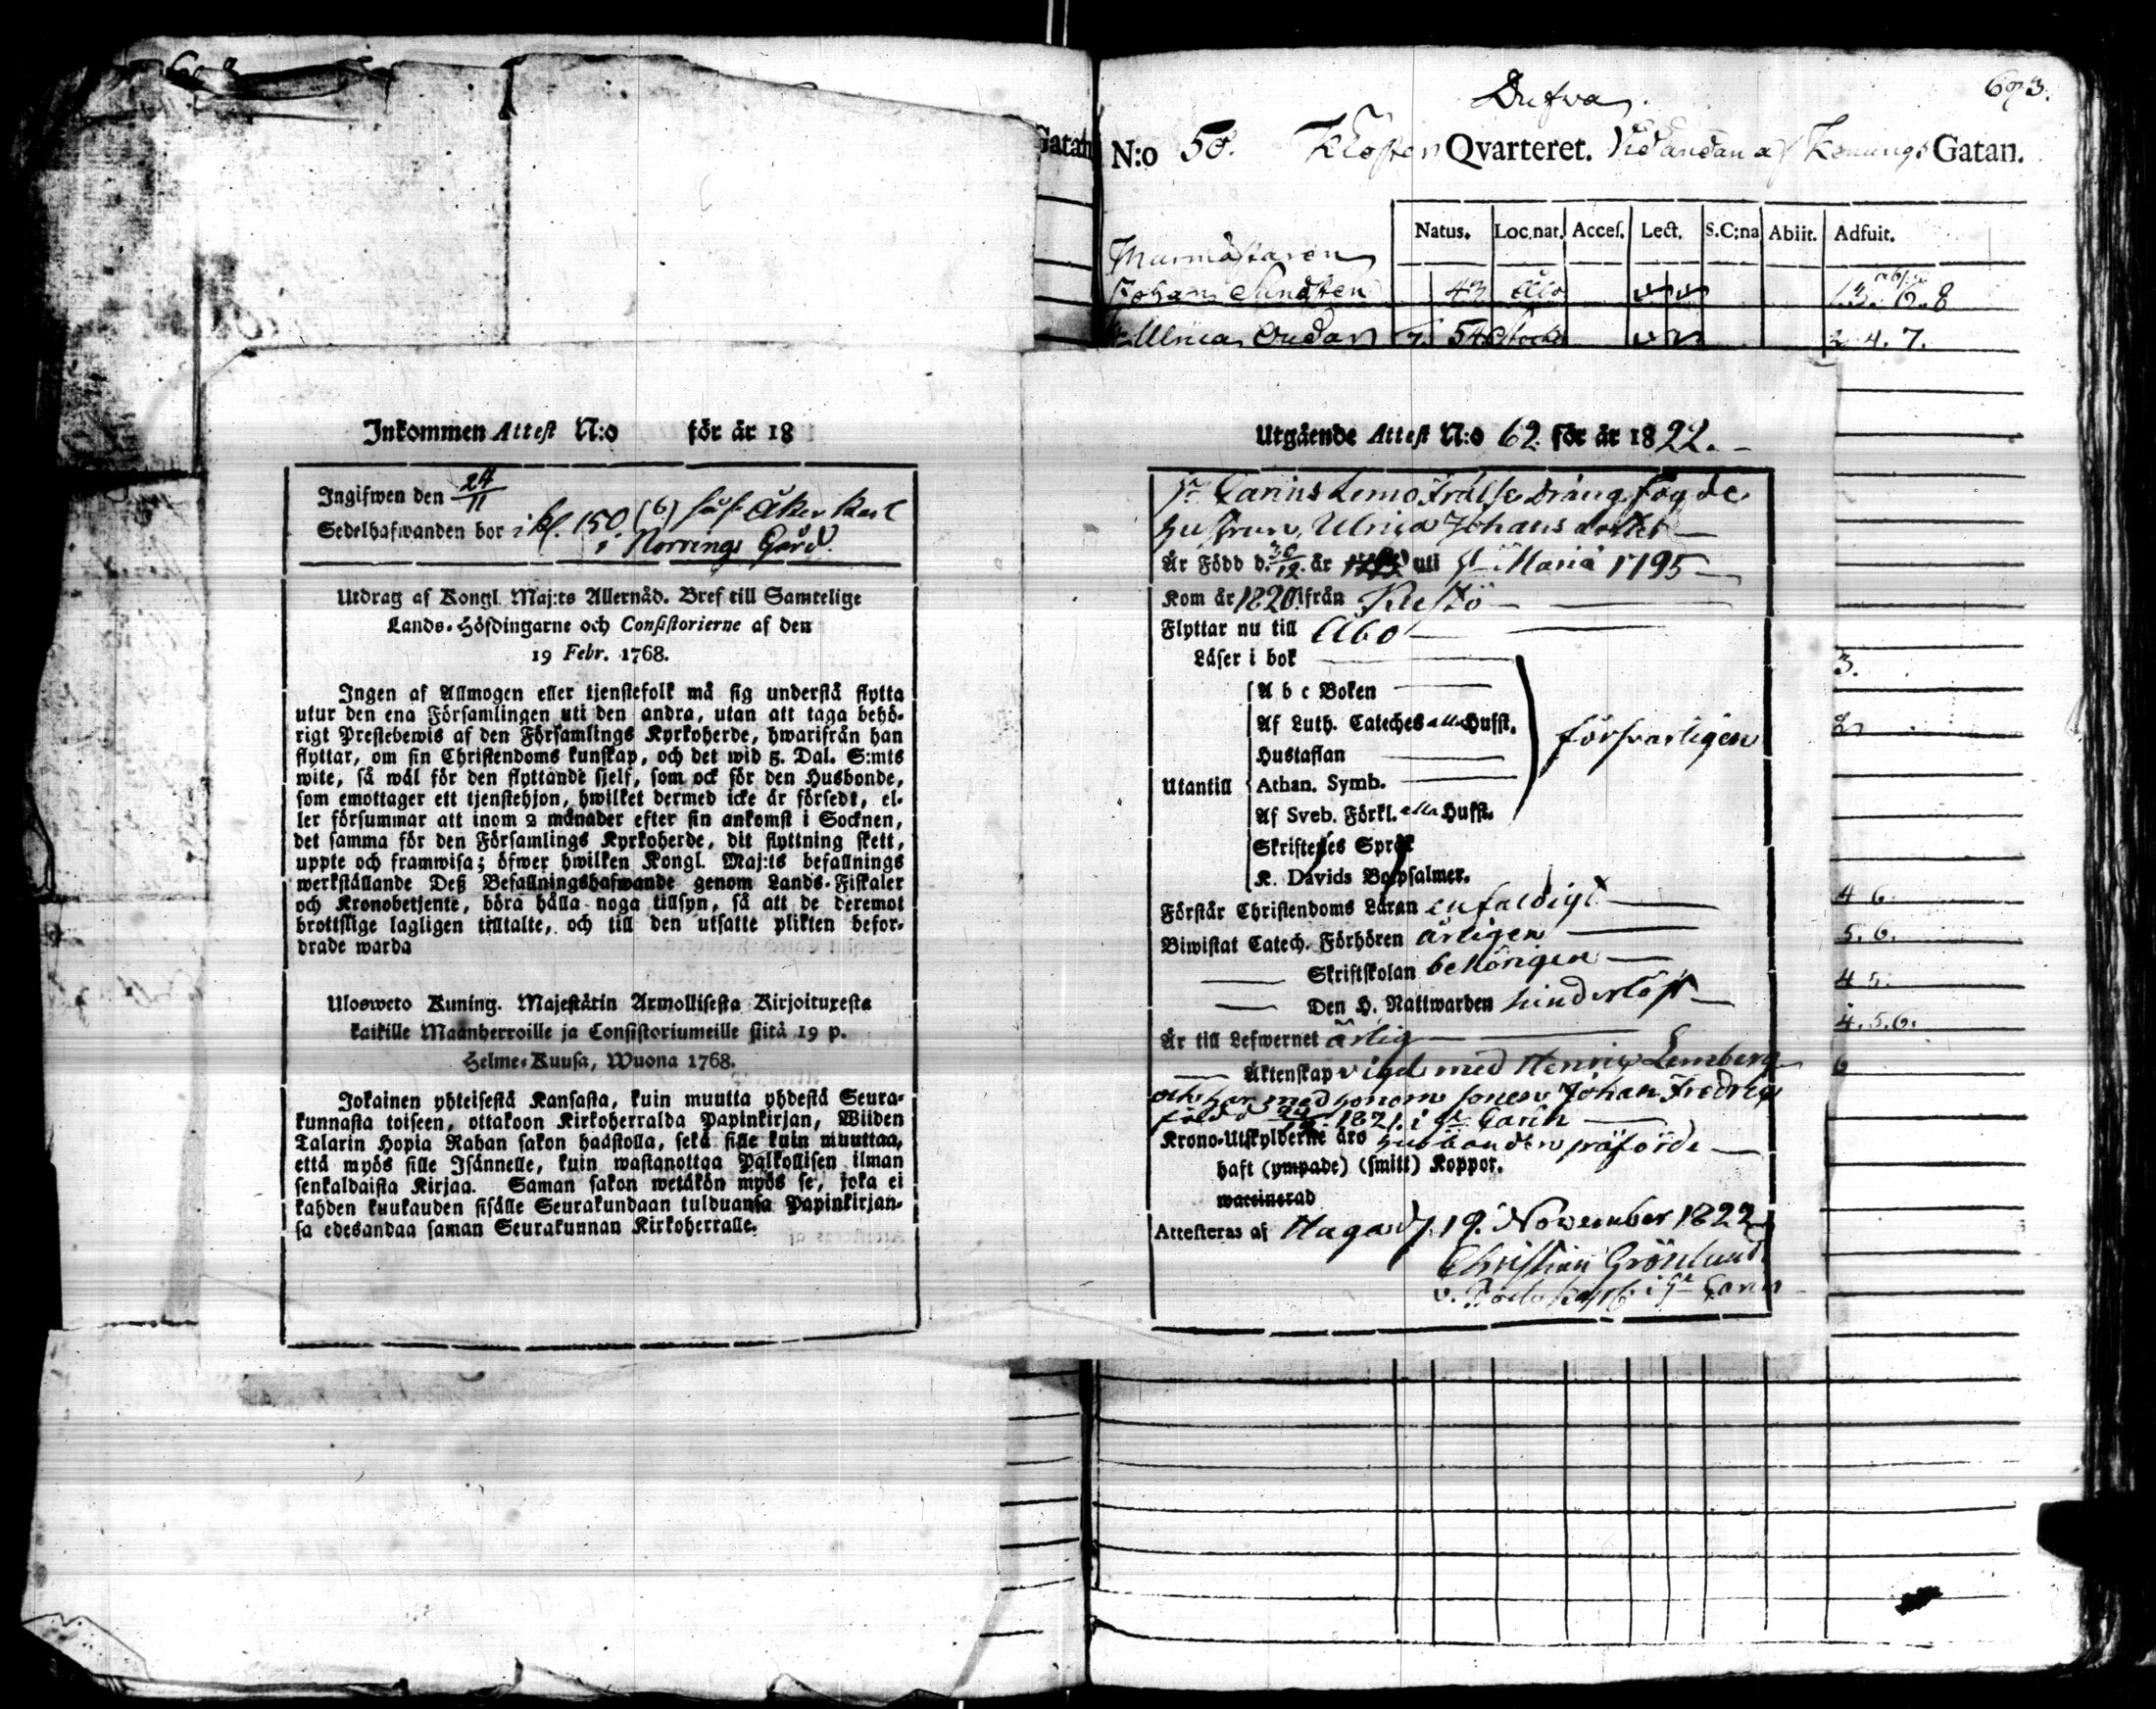 693.
Dufwa.
Gatan
N:o 50. Kloster Qvarteret. Konungs Gatan.
Natus. Loc.nat. Acceſ. Lect. S.C:na Abiit. Adfuit.
Murmästaren
Johan Sundsten 43 Åbo 6.8
Ulrica 54 4.7.
Inkommen Atteſt N:o för år 18
Ingifwen den 24/11
Sedelhafwanden bor i kl. 150 (b) Åker karl
i Norrings Gård.
Utdrag af Kongl. Maj:ts Allernåd. Bref till Samtelige
Lands-Höfdingarne och Conſiſtorierne af den
19 Febr. 1768.
Ingen af Allmogen eller tjenſtefolk må ſig underſtå flytta
utur den ena Förſamlingen uti den andra, utan att taga behö-
rigt Preſtebewis af den Förſamlings Kyrkoherde, hwarifrån han
flyttar, om ſin Chriſtendoms kunſkap, och det wid 5. Dal. S:mts
wite, ſå wäl för den flyttande ſjelf, ſom ock för den Husbonde,
ſom emottager ett tjenſtehjon, hwilket dermed icke är förſedt, el-
ler förſummar att inom 2 månader efter ſin ankomſt i Socknen,
det ſamma för den Förſamlings Kyrkoherde, dit flyttning ſkett,
uppte och framwiſa; öfwer hwilken Kongl. Maj:ts befallnings
werkſtällande Deß Befallningshafwande genom Lands-Fiſkaler
och Kronobetjente, böra hålla noga tillſyn, ſå att de deremot
brottſlige lagligen tilltalte, och till den utſatte plikten befor-
drade warda
Ulosweto Kuning. Majeſtätin Armolliſeſta Kirjoituxeſta
kaikille Maanherroille ja Conſiſtoriumeille ſiitä 19 p.
Helme-Kuuſa, Wuona 1768.
Jokainen yhteiſeſtä Kanſaſta, kuin muutta yhdeſtä Seura-
kunnaſta toiſeen, ottakoon Kirkoherralda Papinkirjan, Wiiden
Talarin Hopia Rahan ſakon haaſtolla, ſekä ſille kuin muuttaa,
että myös ſille Iſännelle, kuin waſtanottaa Palkolliſen ilman
ſenkaldaiſta Kirjaa. Saman ſakon wetäkön myös ſe, joka ei
kahden kuukauden ſiſälle Seurakundaan tulduanſa Papinkirjan-
ſa edesandaa ſaman Seurakunnan Kirkoherralle.
Utgående Atteſt N:o 62 för år 1822.
St Carins Lemo Frälse Dräng fogde
hustrun Ulrica Johansdotter
Är Född d. 30/12 år uti St Mariæ 1795
Kom år 1820 ifrån
Flyttar nu till Åbo
Läſer i bok
A b c Boken
Af Luth. Cateches alla Hufſt.
Huſtaflan
Utantill Athan. Symb.
Af Sveb. Förkl. alla Hufſt.
Skriftenes Språk
K. Davids Botpſalmer.
försvarligen
Förſtår Chriſtendoms Läran enfaldigt
Biwiſtat Catech. Förhören årligen
Skriftſkolan behörigen
Den H. Nattwarden hinderlöst
Är till Lefwernet ärlig
Äktenſkap vigd med Henric Lemberg
och har med honom sonen Johan Fredric
född 1821. i St Carin
Krono-Utſkylderne äro husbonden påförde
haft (ympade) (ſmitt) Koppor.
waccinerad
Atteſteras af Haga d. 19. November 1822
Christian Grönlund
i St Carin
3.
4 6.
5. 6.
4 5.
4. 5. 6.
6